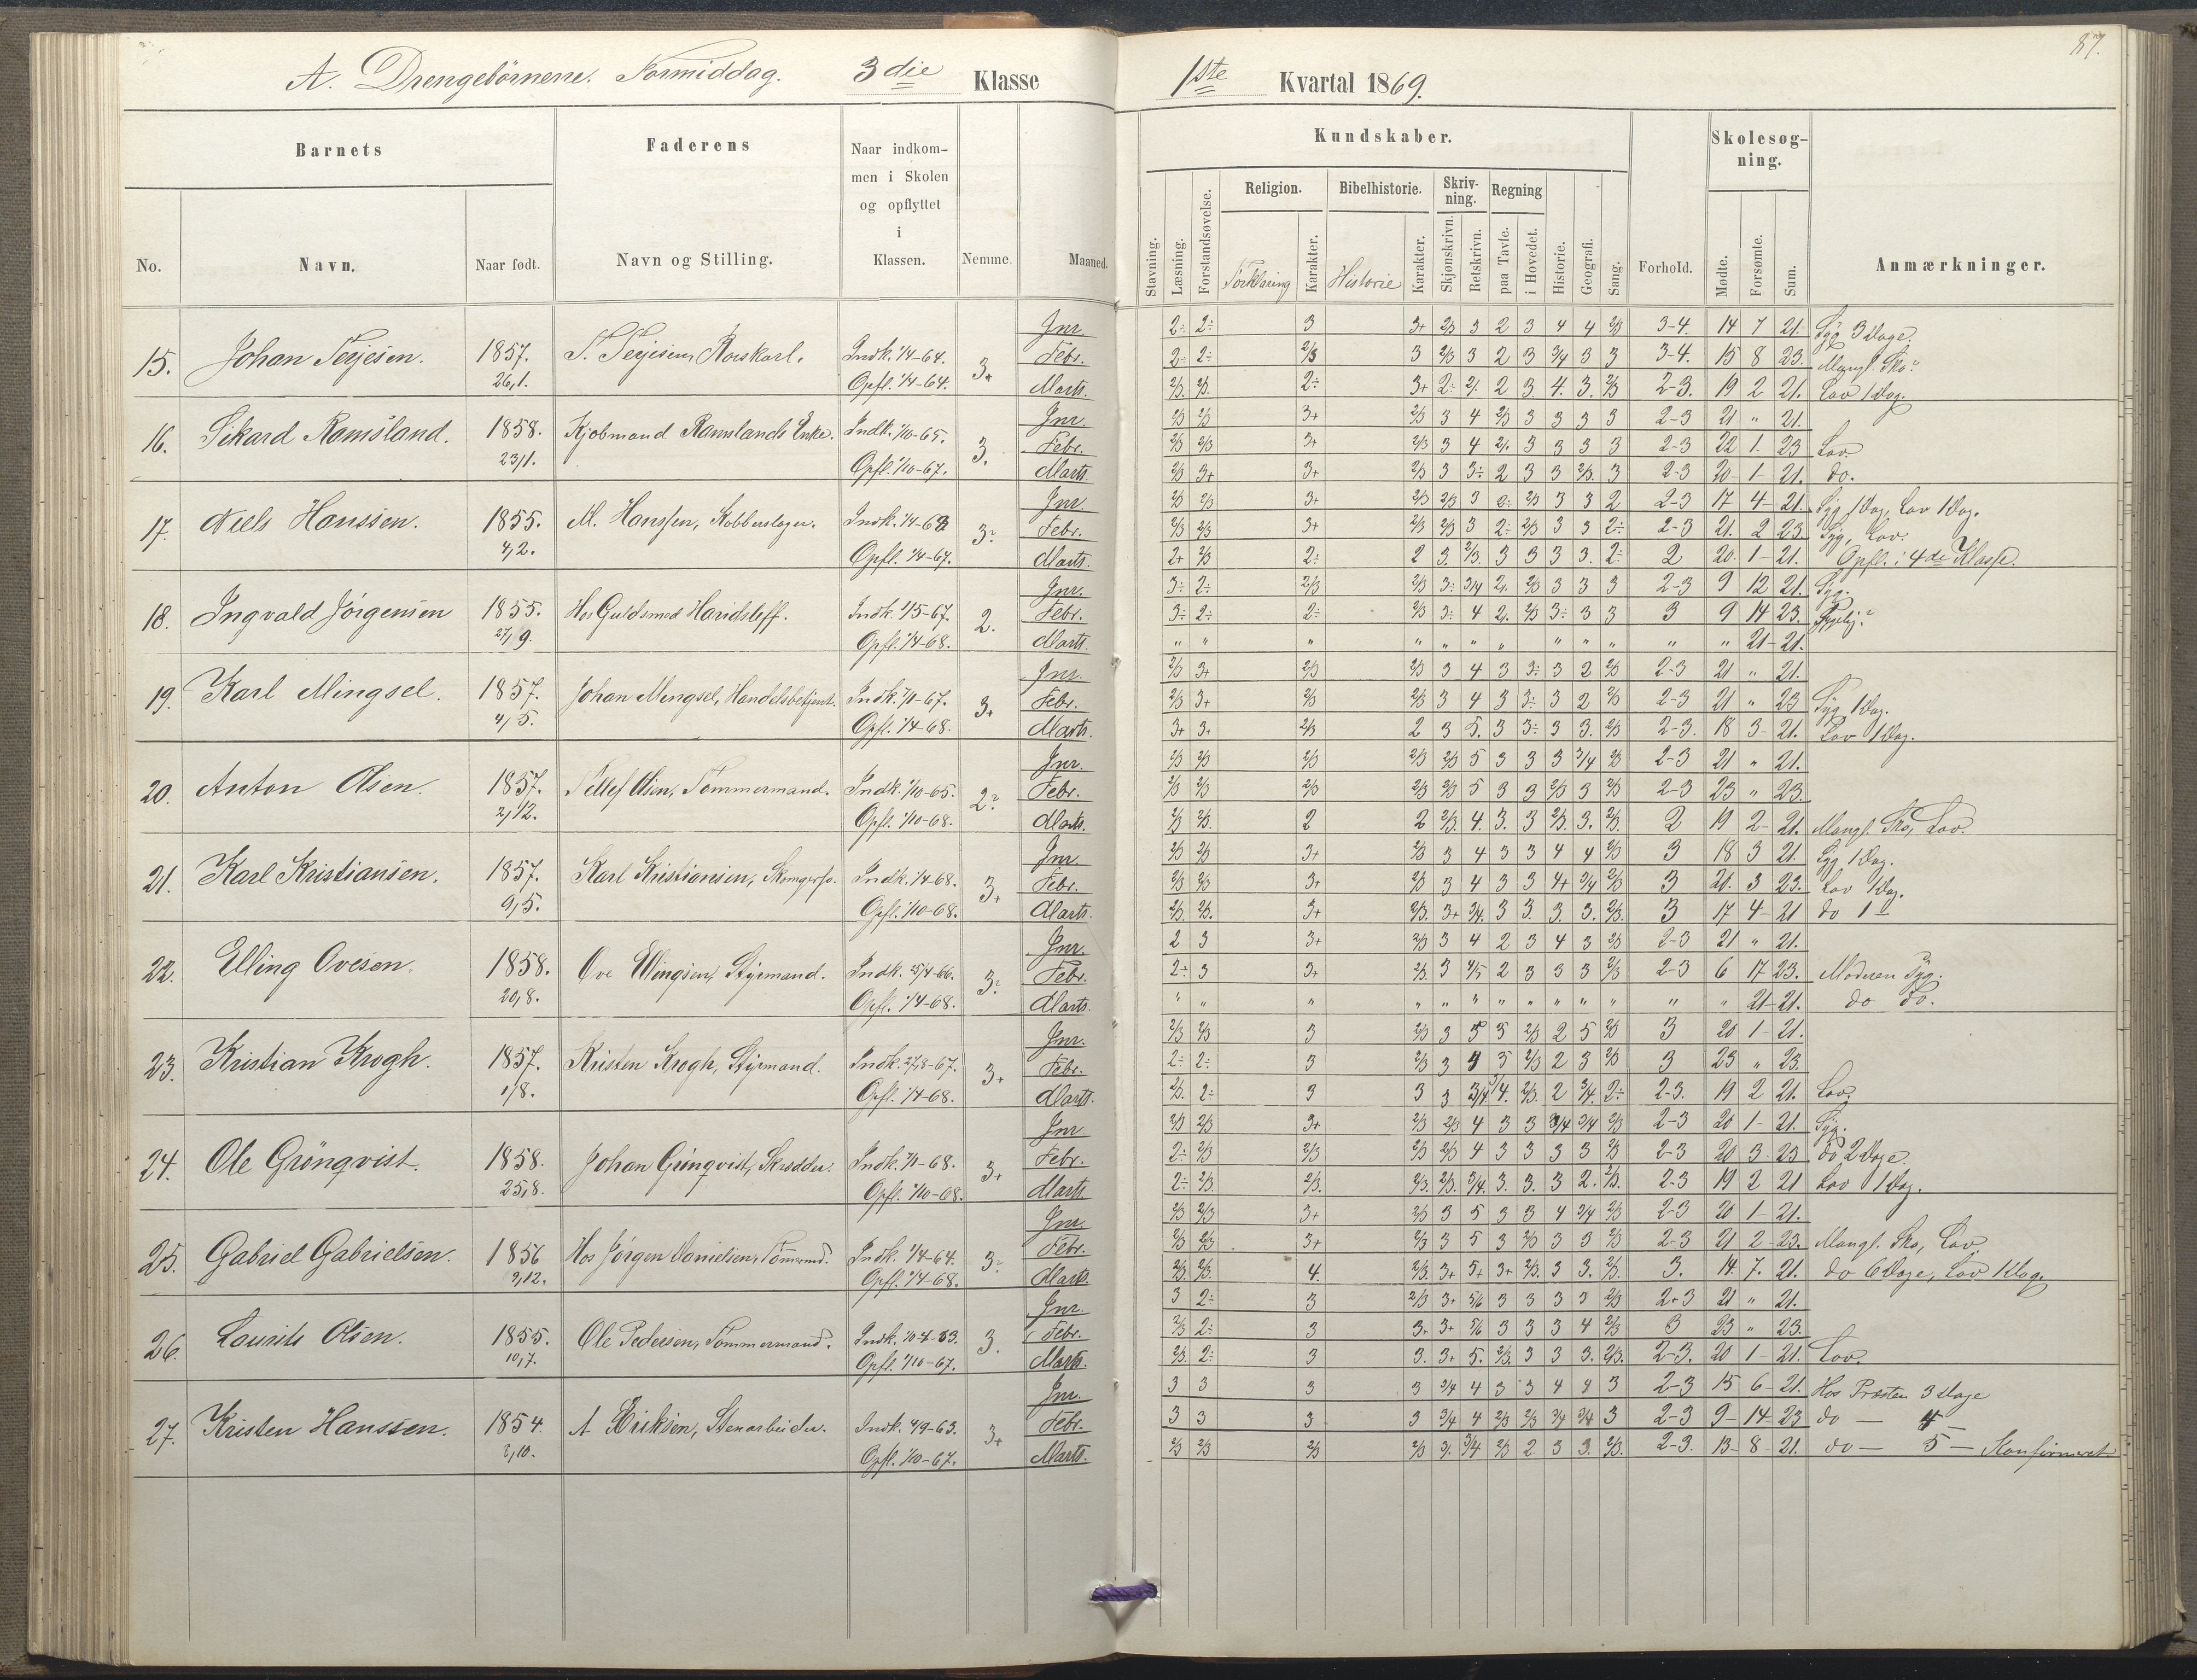 87.
A. Drengebörnene. Formiddag. 3die Klasse
1ste Kvartal 1869.
Barnets
Faderens
Naar indkommen i Skolen og opflyttet i Klassen.
No.
Navn.
Naar født.
Navn og Stilling.
Nemme.
Maaned.
Kundskaber.
Skolesøgning.
Stavning.
Læsning.
Forstandsøvelse.
Religion.
Forklaring
Karakter.
Bibelhistorie.
Historie
Karakter.
Skrivning.
Skjønskrivn.
Retskrivn.
Regning
paa Tavle.
i Hovedet.
Historie.
Geografi.
Sang.
Forhold.
Mødte.
Forsømte.
Sum.
Anmærkninger.
15. Johan Terjesen. 1857. 26/1. T. Terjesen, Indk. 1/4-64. Opfl. 1/4-64. 3+
Jnr. 2÷ 2÷ 3 3+ 2/3 3 2 3 4 4 2/3 3-4. 14 7 21. Syg 3 Dage.
Febr. 2÷ 2÷ 2/3 3 2/3 3 2 3 3/4 3 3 3-4. 15 8 23. Mangl. Sko.
Marts. 2/3. 2/3. 2÷ 3+ 2÷ 2 3 4. 3. 2/3 2-3. 19 2 21. Lov 1 Dag.
16. Sikard Ramsland. 1858. 23/1. Kjobmand Ramslands Enke. Indk. 1/10-65. Opfl. 1/10-67. 3.
Jnr. 2/3 2/3 3+ 2/3 3 4 2/3 3 3 3 3 2-3 21 " 21.
Febr. 2/3 2/3 3+ 2/3 3 4 3 3 3 3 2-3 22 1. 23 Lov.
Marts 2/3 3+ 3+ 2/3 3 3÷ 2 3 3 2/3. 3 2-3 20 1 21. do.
17. Niels Hanssen. 1855. 4/2. M. Hanssen, Kobberslager. Opfl. 1/4-67. 3
Jnr. 2/3 2/3 3+ 2/3 2/3 3 2÷ 2/3 3 3 2 2-3 17 4 21. Syg 1 Dag, Lov 1 Dag.
Febr. 2/3 2/3 3+ 2/3 2/3 3 2÷ 2/3 3 3 2÷ 2-3 21. 2 23. Syg, Lov.
Marts. 2+ 2/3 2÷ 2 3. 2/3. 3 3 3 3. 2÷ 2 20. 1 21. Opfl. i 4de Klasse.
18. Ingvald Jörgensen 1855. 27/9. Hos Guldsmed Haridsleff. Indk. 1/5-67. Opfl. 1/4-68. 2.
Jnr. 3÷ 2÷ 2/3 2/3 3÷ 3/4 2/3 3 3 3 2-3 9 12 21. Syg.
Febr. 3÷ 2÷ 2÷ 2/3 3÷ 4 2/3 3÷ 3 3 3 9 14 23.
Marts. " " " " " " " " " " " " 21 21.
19. Karl Mingsel. 1857. 4/5. Johan Mingsel, Handelsbetjent. Indk. 7/1-67. Opfl. 1/4-68. 3+
Jnr. 2/3 3+ 2/3 2/3 3 4 3 3÷ 3 2 2/3 2-3 21 " 21.
Febr. 2/3 3+ 2/3 2/3 3 4 3 3÷ 3 2 2/3 2-3 21 " 23 Syg 1 Dag.
Marts. 3+ 3+ 2/3 2 3 5. 3 3÷ 3 3. 2/3 2-3. 18 3 21. Lov 1 Dag.
20. Anton Olsen. 1857. 2/12. Olsen, Tømmermand. Indk. 1/10-65. Opfl. 1/10-68. 2
Jnr. 2/3 2/3 2/3 2/3 2/3 5 3 3 3 3/4 2/3 2-3 21 " 21.
Febr. 2/3 2/3 2/3 2/3 2/3 5 3 3 2/3 3 2/3 2-3 23 " 23.
Marts. 2/3 2/3. 2 2 2/3. 4. 3. 3 2/3. 3. 2/3. 2 19 2 21. Mangl. Sko, Lov.
21. Karl Kristiansen. 1857. 9/5. Karl Kristiansen, Indk. 1/4-68. Opfl. 1/10-68. 3+
Jnr. 2/3 2/3 3+ 2/3 3 4 3 3 4 4 2/3 3 18 3 21. Syg 1 Dag.
Febr. 2/3 2/3 3+ 2/3 3 4 3 3 4+ 3/4 2/3 3 20. 3 23. Lov 1 Dag.
Marts. 2/3. 2/3. 3+ 2/3. 3+ 3/4. 3 3. 3. 3. 2/3. 3 17 4 21 do 1
22. Elling Ovesen. 1858. 20/8. Ove Ellingsen, Styrmand. Indk. 25/4-66. Opfl. 1/4-68. 3
Jnr. 2 3 3+ 2/3 3 4 2 3 4 3 2/3 2-3 21 " 21.
Febr. 2+ 3 3+ 2/3. 3 4/5 2 3 3 3 2/3 2-3 6 17 23. Moderen Syg.
Marts. " " " " " " " " " " " " " " 21 21. do do.
23. Kristian Krogh. 1857. 1/8. Kristen Krogh, Styrmand. Indk. 27/8-67. Opfl. 1/4-68. 3+
Jnr. 2/3 2/3 3 2/3 3 3 2/3 2 5 2/3 3 20 1 21.
Febr. 2÷ 2÷ 3 2/3 3 4 3 2/3 2 3 2/3 3 23 " 23.
Marts. 2/3. 2÷ 3 3 3 3/4. 2/3. 2 3/4. 2÷ 2-3. 19 2 21. Lov.
24. Ole Grönqvist. 1858. 25/8. Johan Grönqvist, Skrædder. Indk. 7/1-68. Opfl. 1/10-68. 3+
Jnr 2/3 2/3 3+ 2/3 2/3 4 3 3 3/4 3/4 2/3 2-3 20 1 21. Syg.
Febr. 2÷ 2/3 2/3 2/3 2/3 4 3 3 3 3 2/3 2-3 20 3 23 do 2 Dage.
Marts. 2÷ 2/3. 2/3. 2/3. 2/3. 3/4. 3. 3. 3 2. 2/3. 2-3 19 2 21 Lov 1 Dag.
25. Gabriel Gabrielsen. 1856 9/12. Hos Jørgen Danielsen, Tömmermd. Indk. 1/4-64. Opfl. 1/4-68. 3
Jnr. 2/3 2/3 3+ 2/3 3 5 3 3 4 3/4 2/3 2-3 20 1 21.
Febr. 2/3 2/3 3+ 2/3 3 5 3 2/3 3 3 2/3 2-3 21 2 23. Mangl. Sko, Lov
Marts. 2/3. 2/3. 4. 2/3. 3+ 5+ 3+ 2/3. 3 3. 2/3. 3. 14. 7. 21. do 6 Dage, Lov 1 Dag.
26. Laurits Olsen. 1855. 10/7. Ole Pedersen, Tömmermand. Opfl. 1/10-67. 3.
Jnr. 3 2÷ 3 2/3 3+ 5/6 3 3 3 3 2/3 2+3 21 " 21.
Febr. 2/3 2÷ 3 3+ 3+ 5/6 3 3 3 4 2/3 3 23 " 23.
Marts. 2/3. 2÷ 3 3. 3+ 5. 2/3. 3 3 3. 2/3. 2-3. 20 1 21. Lov.
27. Kristen Hanssen. 1854. 3/10. A Eriksen, Stenarbeider. Indk. 4/9-63. Opfl. 1/10-67. 3+
Jnr. 3 3 3 3 3/4 4 3 3 4 4 3 2-3 15 6 21. Hos Præsten 3 Dage
Febr. 3 3 3 3 3/4 4 2/3 2/3 3/4 3/4 3 2-3 9 14 23 do — 4 —
Marts. 2/3 2/3 2/3 2/3 3. 3/4 2/3 2 3 3. 2/3. 2-3. 13 8 21. do — 5 — Konfirmeret.